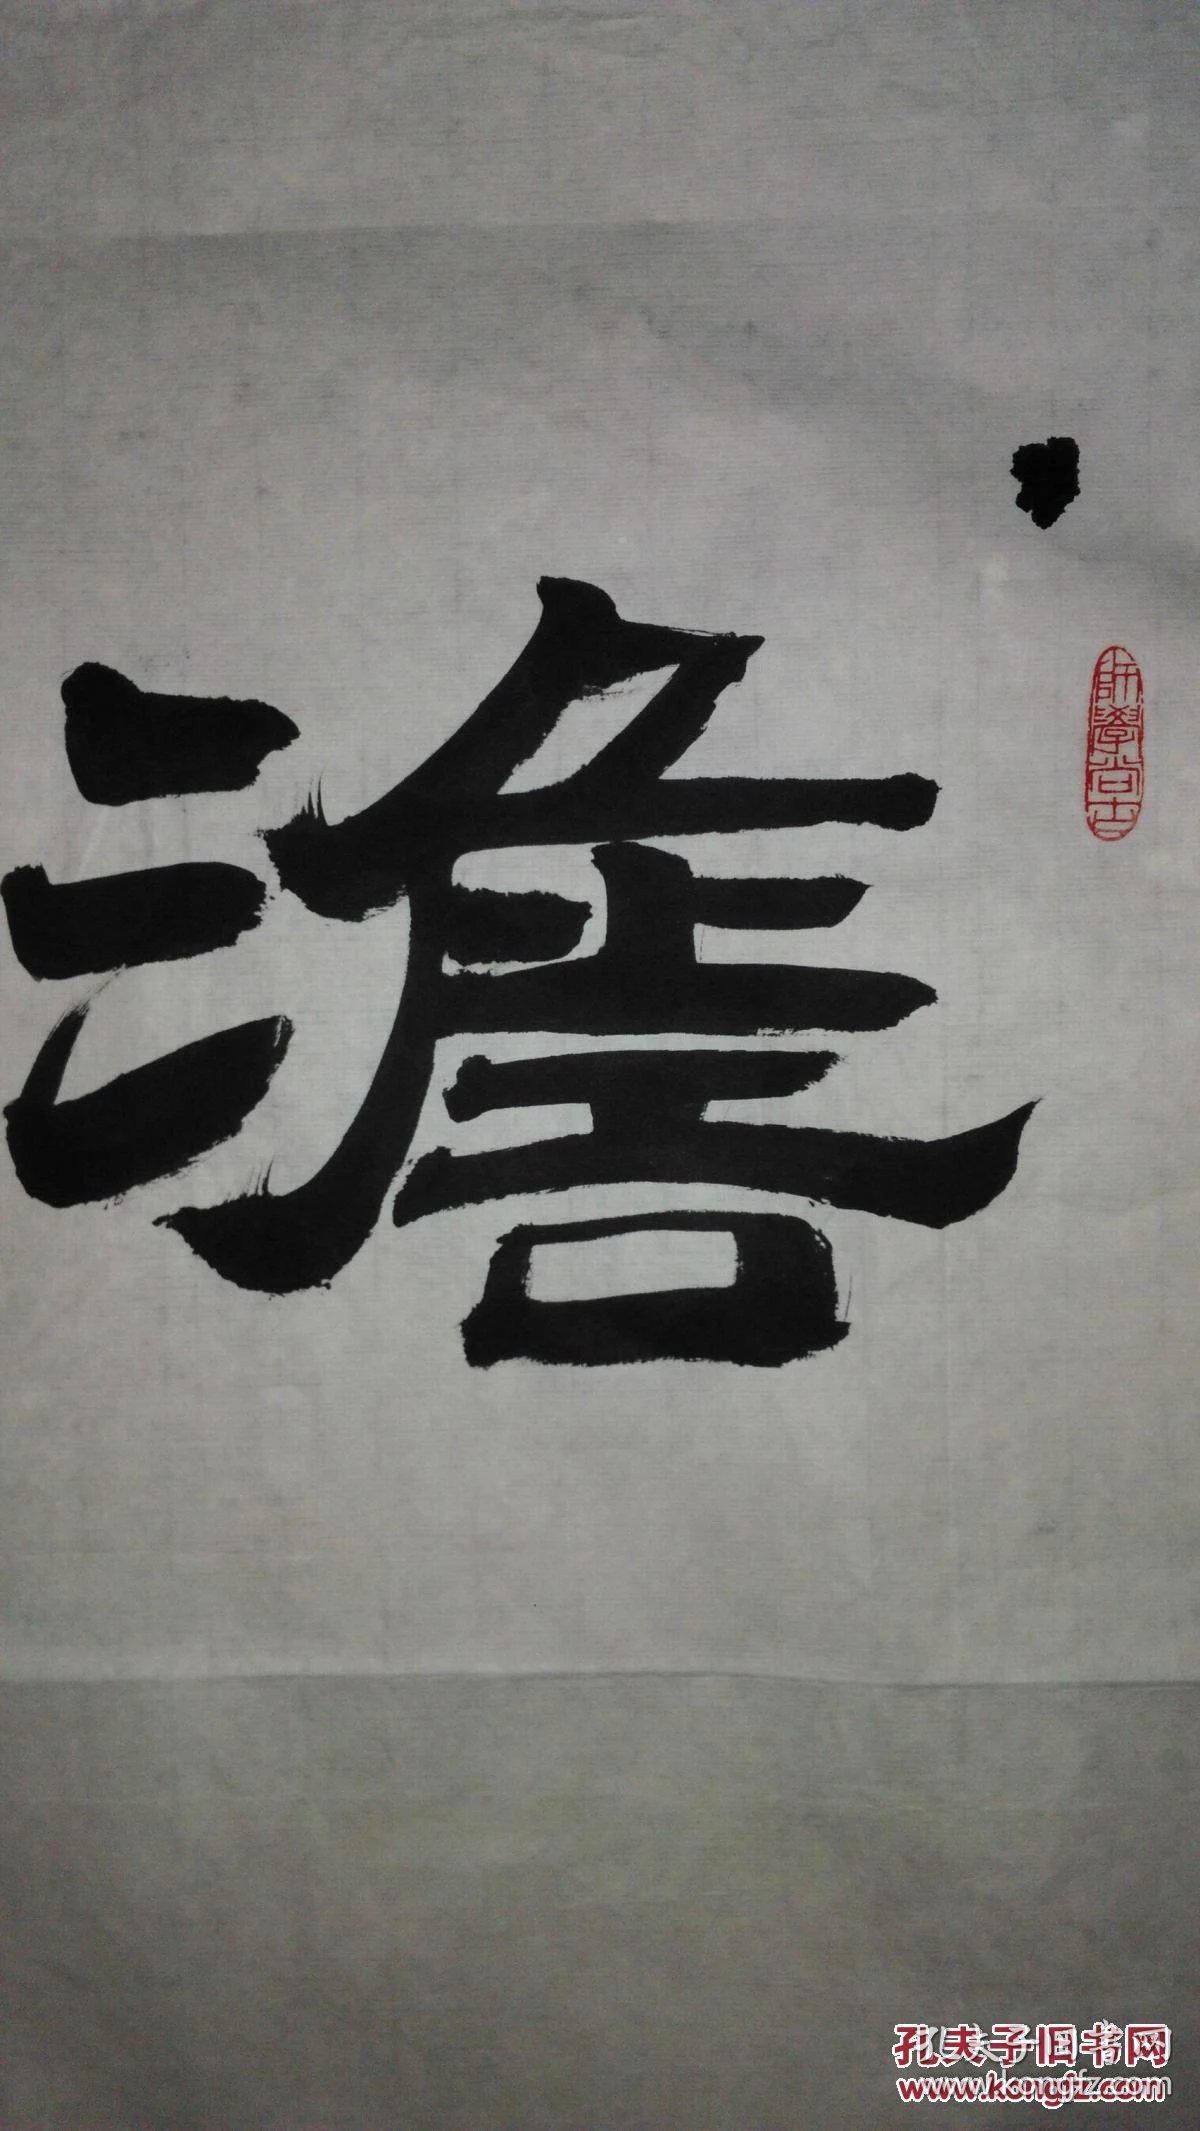 澹
師學尚古
孔夫子旧书网
www.kongfz.com